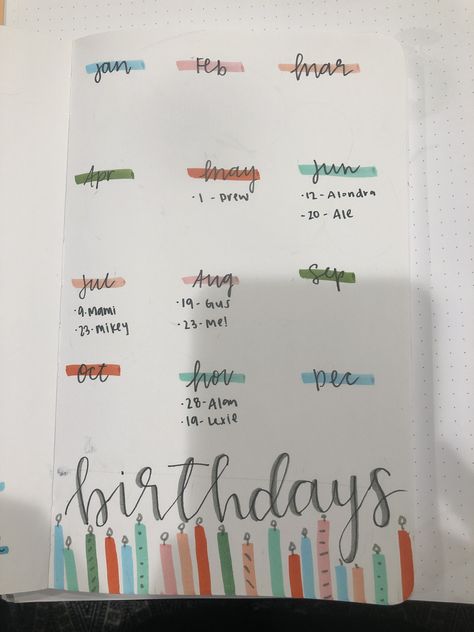 Jan Feb Mar
Apr May Jun
· 1 - Drew
· 12 - Alondra
· 20 - Ale
Jul Aug Sep
· 9 - Mami
· 23 - Mikey
· 19 - Gus
· 23 - Me!
Oct Nov Dec
· 28 - Alan
· 19 - Lexie
birthdays